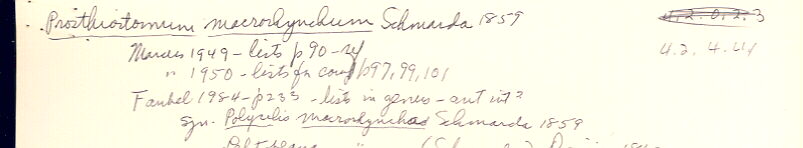 Prosthiostomum macrorhynchum Schmarda 1859
4.2.4.41
Marcus 1949 - lists p90 - ref
" 1950 - lists for comp p97, 99, 101
Faubel 1984 - p233 - lists in genus - ant int?
Syn. Polycelis macrorhynchus Schmarda 1859
(Schmarda)